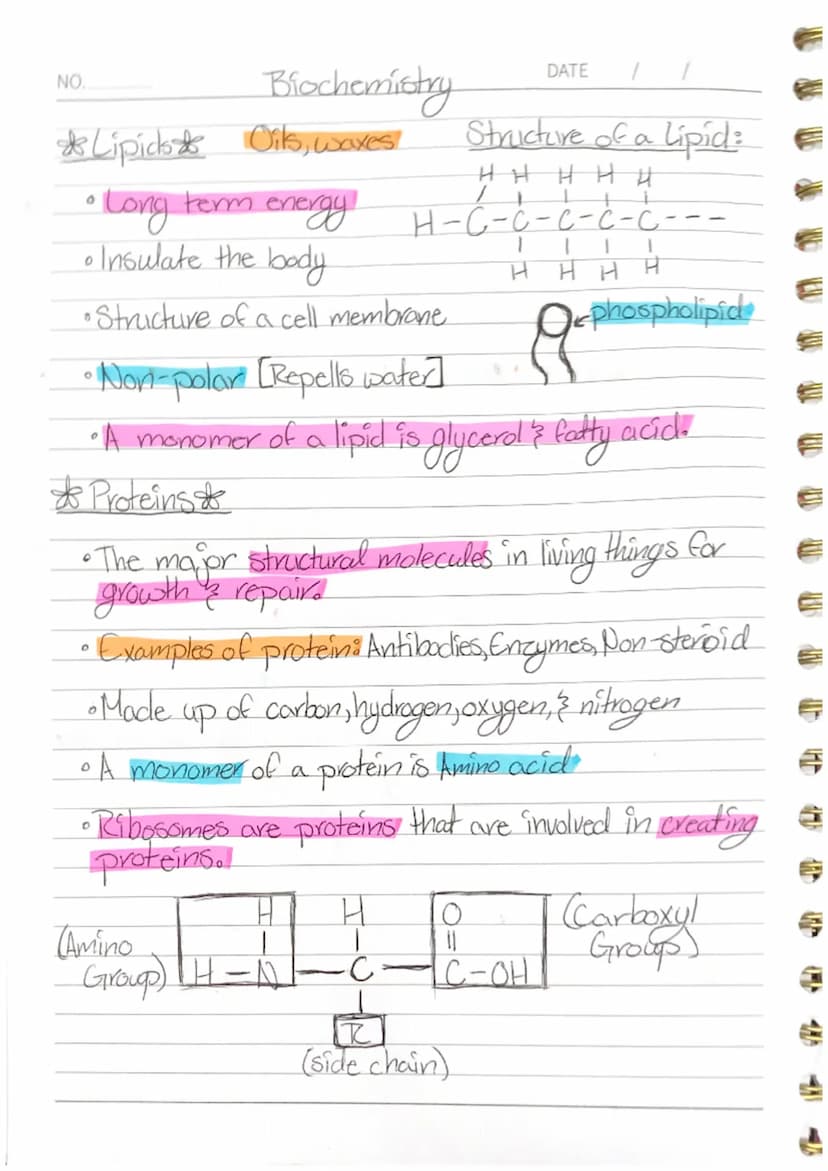 NO.
Biochemistry
DATE / /
*Lipids* Oils, waxes
Structure of a Lipid:
H H H H H
H-C-C-C-C-C---
H H H H
• Long term energy
• Insulate the body
• Structure of a cell membrane
phospholipid
• Non-polar [Repells water]
• A monomer of a lipid is glycerol & fatty acid.
*Proteins*
• The major structural molecules in living things for
growth & repair.
• Examples of protein: Antibodies, Enzymes, Non-steroid
• Made up of carbon, hydrogen, oxygen, & nitrogen
• A monomer of a protein is Amino acid
• Ribosomes are proteins that are involved in creating
proteins.
(Amino
Group)
H H O
H-N-C-C-OH
(Carboxyl
Group)
R
(side chain)